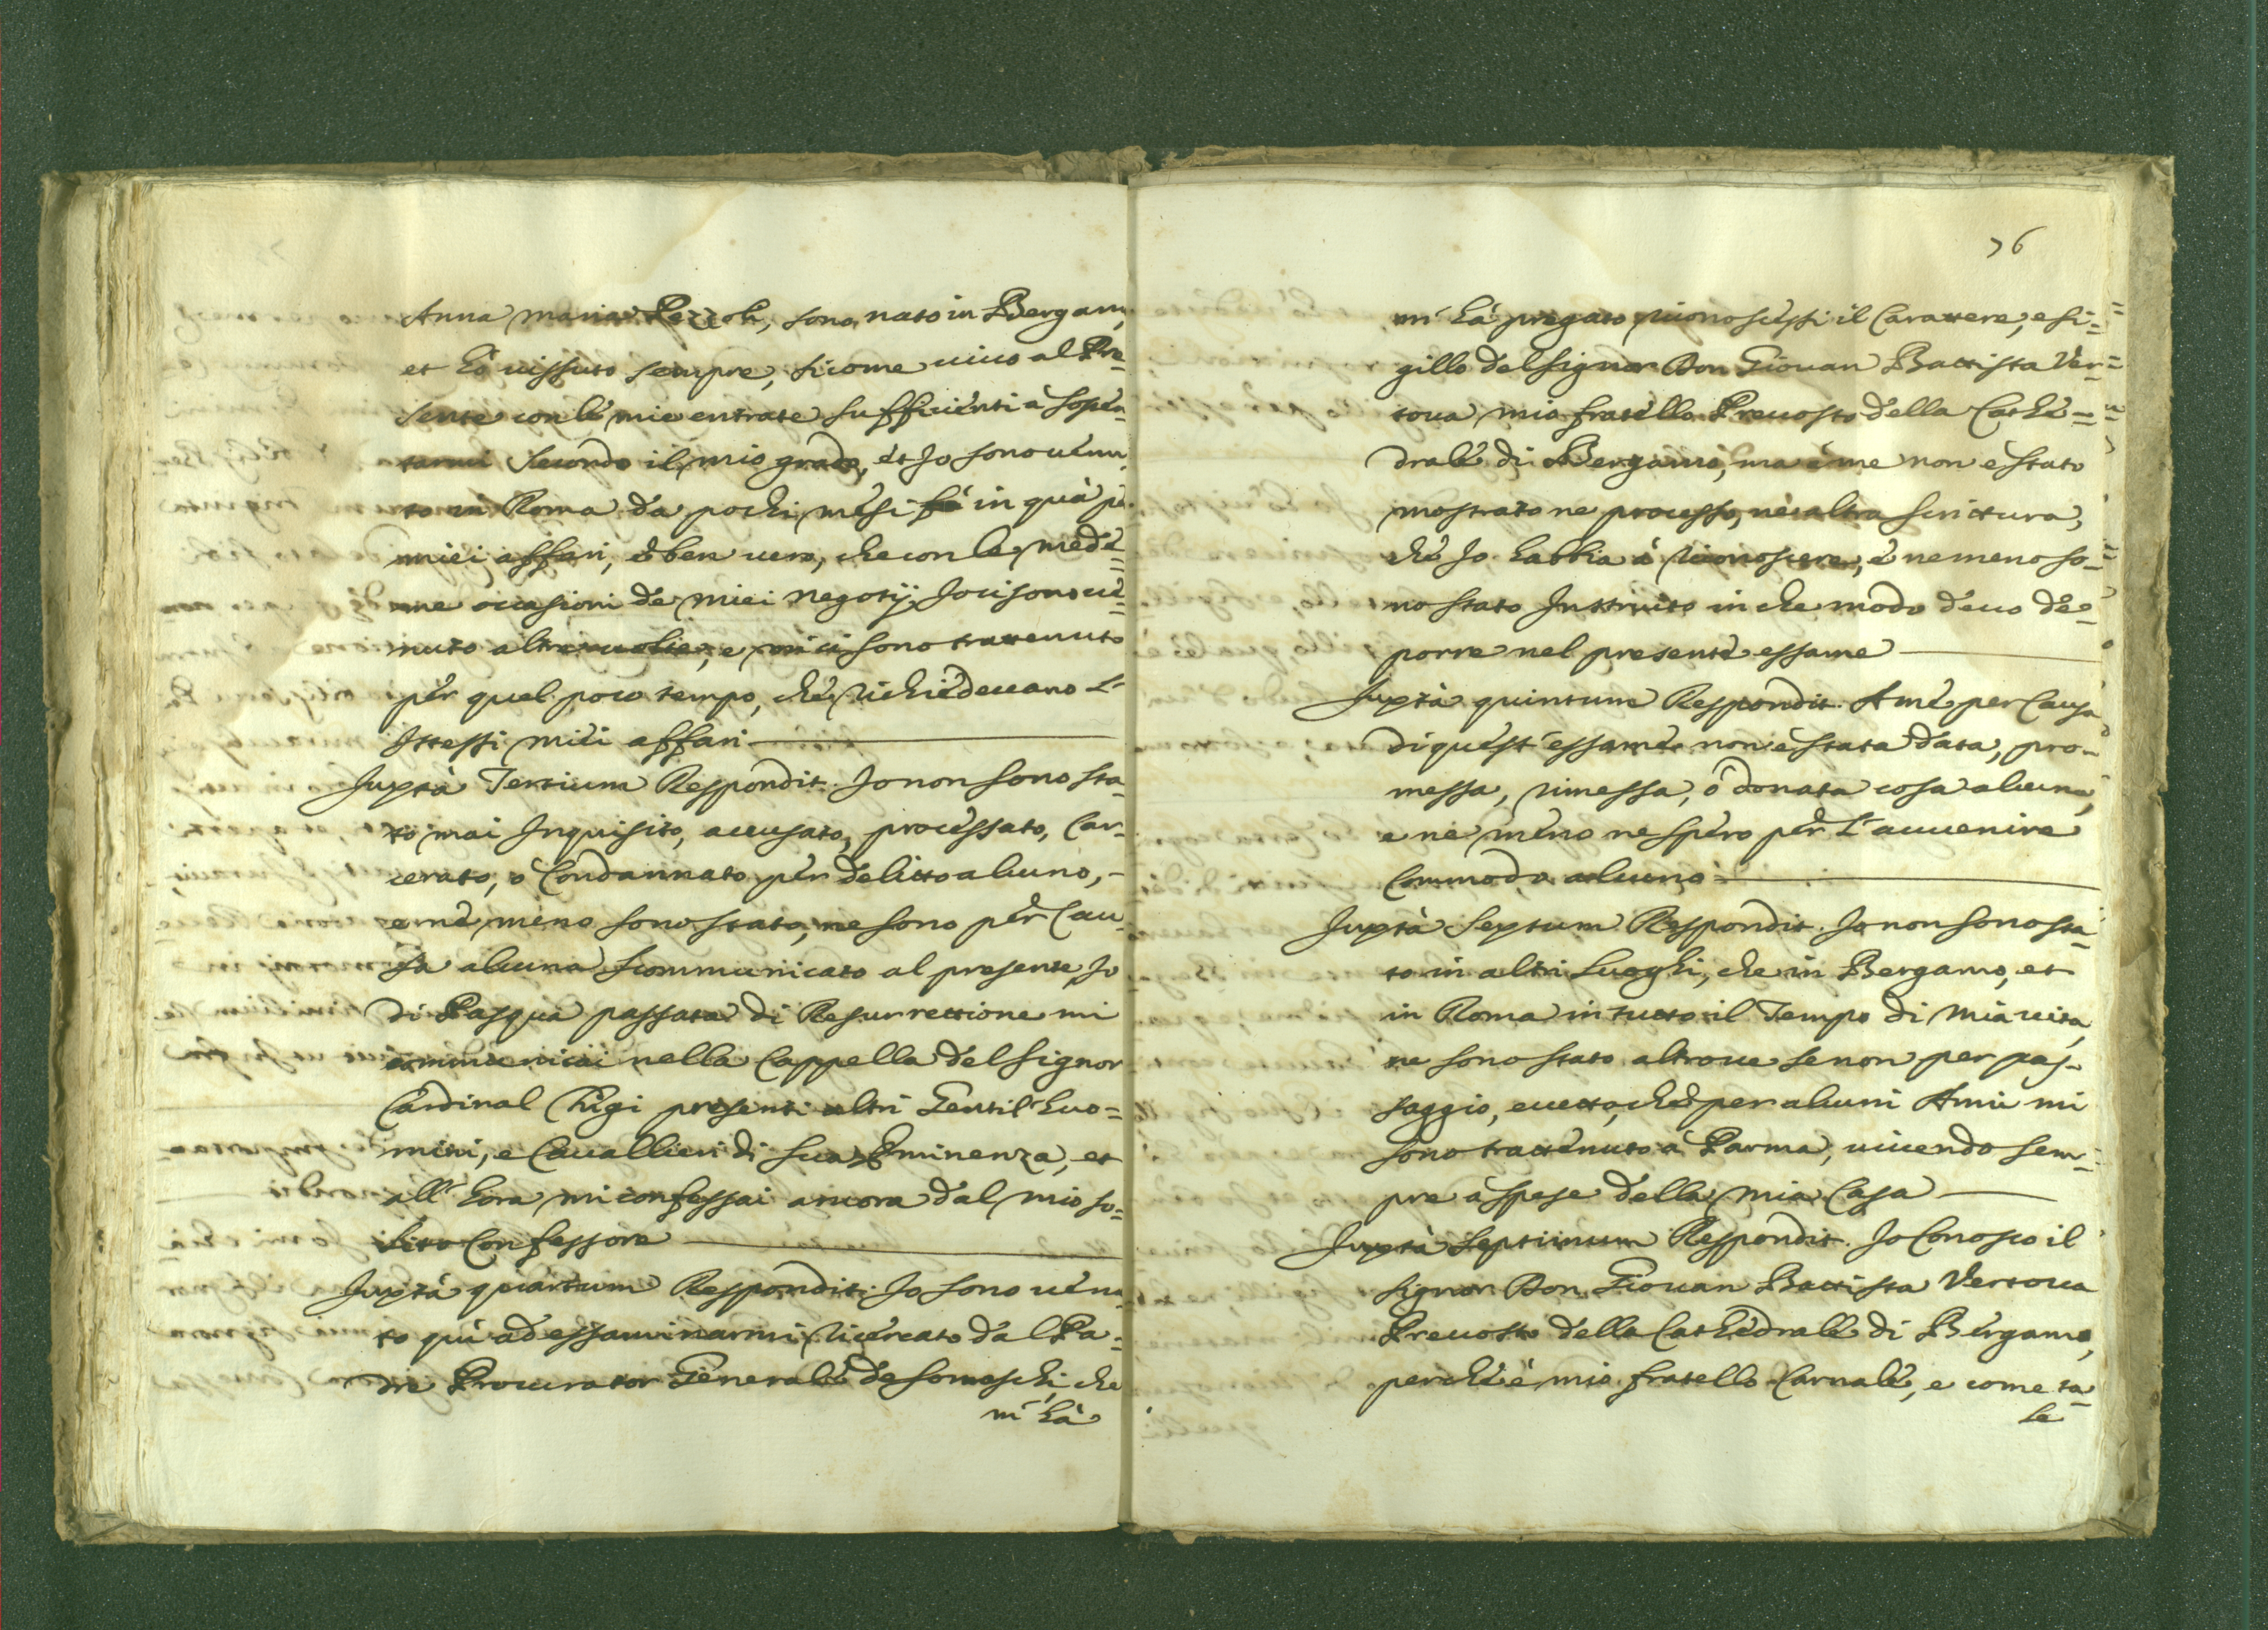 Anna Maria Pezzoli, sono nato in Bergamo,
et hò uissuto sempre, sicome uiuo al Pre-
sente con le mie entrate sufficienti à sosten-
tarmi secondo il mio grado, et Io sono uenu-
to in Roma da pochi mesi fà in quà pe
miei affari, è ben uero, che con le mede=
me occasioni de miei negotij Io ci sono ue=
nuto altre uolte, e mi ci sono trattenuto
per quel poco tempo, che richiedeuano l'
Istessi miei affari
Juxtà Tertium Respondit. Io non sono sta-
to mai Inquisito, accusato, processato, Car-
cerato, ò Condannato per delitto alcuno,-
e nè meno sono stato, ne sono per Cau-
sa alcuna scommunicato al presente, Io
di Pasqua passata di Resurrettione mi
communicai nella Cappella del Signor
Cardinal Chigi presenti altri Gentil'huo=
mini, e Cauallieri di sua Eminenza, et
all' hora mi confessai ancora dal mio so=
lito Confessore
Juxtà quartum Respondit. Io sono uenu-
to quì ad essaminarmi ricercato dal Pa=
dre Procurator Generale de Somaschi, che
m' hà
76
m' hà pregato riconoscessi il Carattere, e si=
gillo del Signor Don Giouan Battista Ver=
toua mio fratello Preuosto della Cathe=
drale di Bergamo, ma à me non è stato
mostrato ne processo, nè altra scrittura,
che Io habbia à riconoscere, è nemeno so=
no stato Instruito in che modo deuo de=
porre nel presente essame
Juxtà quintum Respondit. A me per Causa
di quest' essame non è stata data, pro-
messa, rimessa, ò donata cosa alcuna,
e ne meno ne spero per l' auuenire
Commodo alcuno
Juxtà Sextum Respondit. Io non sono sta-
to in altri luoghi, che in Bergamo, et
in Roma in tutto il Tempo di mia uita,
ne sono stato altroue se non per pas-
saggio, eccetto, che per alcuni Anni mi
sono trattenuto à Parma, uiuendo sem-
pre à spese della mia Casa
Juxtà Septimum Respondit. Io Conosco il
Signor Don Giouan Battista Vertoua
Preuosto della Cathedrale di Bergamo,
perche è mio fratello Carnale, e come ta-
le